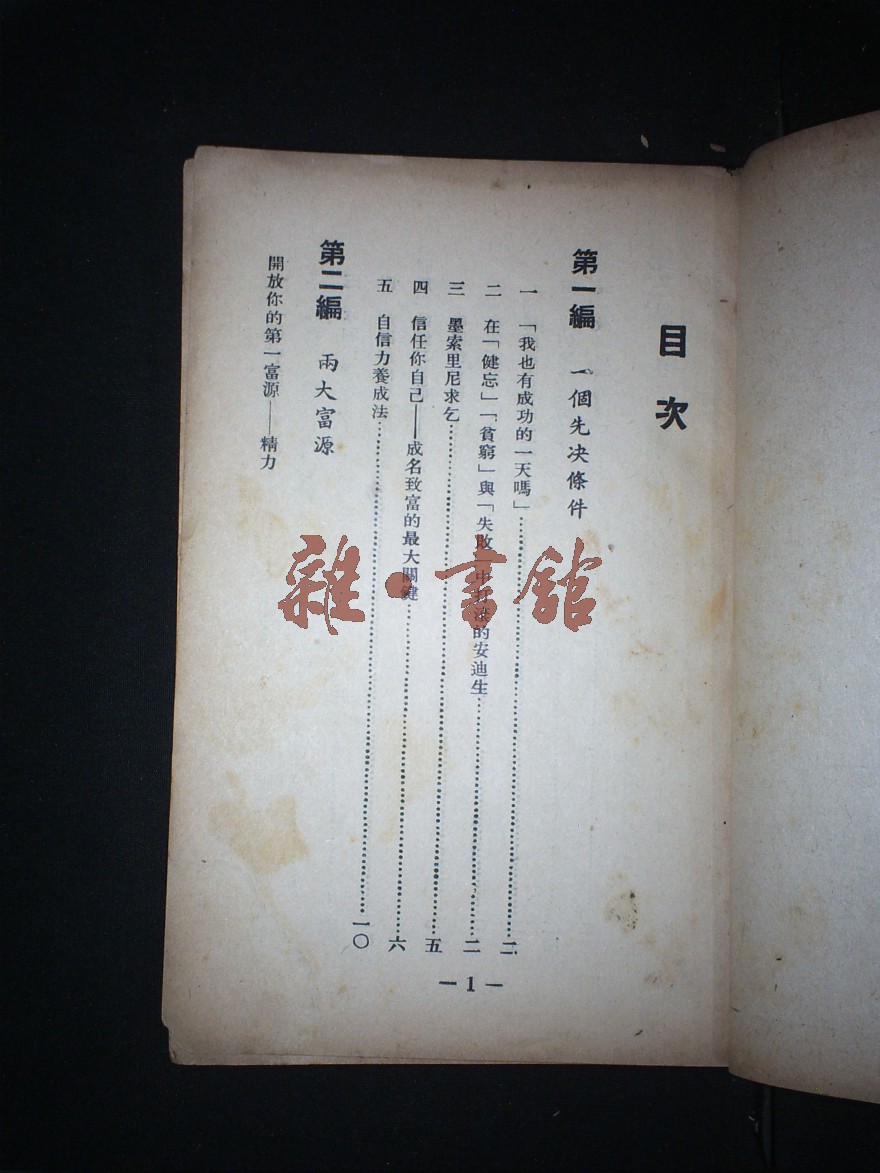 目次
第一編 一個先决條件
一 「我也有成功的一天嗎」 二
二 在「健忘」「貧窮」與「失敗」中打滾的安迪生 二
三 墨索里尼求乞 五
四 信任你自己——成名致富的最大關鍵 六
五 自信力養成法 一〇
第二編 兩大富源
開放你的第一富源——精力
— 1 —
雜·書館